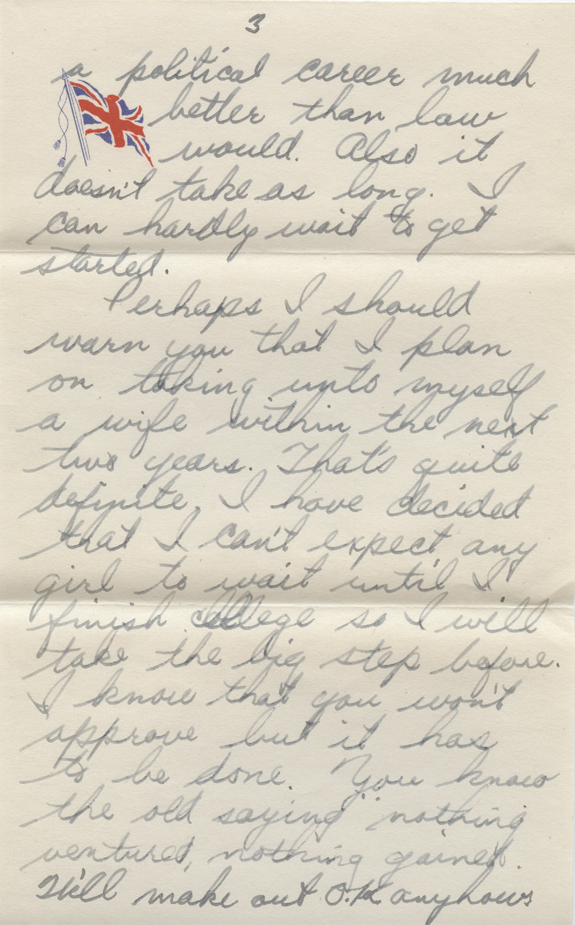 3
a political career much
better than law
would. Also it
doesn't take as long. I
can hardly wait to get
started.
Perhaps I should
warn you that I plan
on taking unto myself
a wife within the next
two years. That's quite
definite, I have decided
that I can't expect any
girl to wait until I
finish college so I will
take the big step before.
I know that you won't
approve but it has
to be done. You know
the old saying "nothing
ventured, nothing gained.
We'll make out O.K anyhow